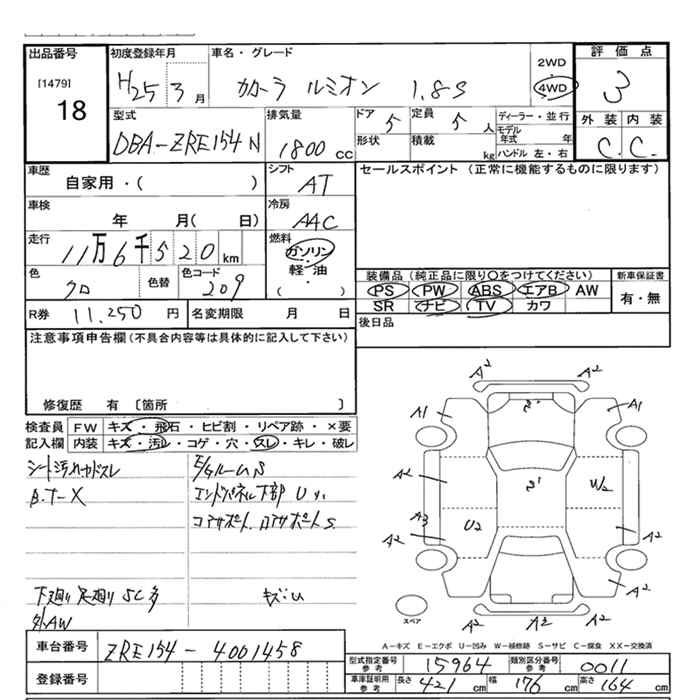 出品番号 初度登録年月 車名・グレード 2WD 評価点
[1479] H25 3月 カローラ ルミオン 1.8S 4WD 3
18
型式 排気量 ドア 定員 ディーラー・並行 外装 内装
DBA-ZRE154N 1800 cc 5 5人 モデル年式 年 C. C.
形状 積載 kg ハンドル 左・右
車歴 シフト セールスポイント (正常に機能するものに限ります)
自家用・( ) AT
車検 冷房
年 月( 日) AAC
走行 燃料
11万6千520km ガソリン
軽・油
・
( )
色 色替 色コード 装備品 (純正品に限り○をつけてください) 新車保証書
クロ 209 PS PW ABS エアB AW 有・無
SR ナビ TV カワ
R券 11,250 円 名変期限 月 日 後日品
注意事項申告欄 (不具合内容等は具体的に記入して下さい)
修復歴 有 〔箇所 〕
検査員 FW キズ・飛石・ヒビ割・リペア跡・×要
記入欄 内装 キズ・汚レ・コゲ・穴・スレ・キレ・破レ
シート汚れ
E/GルームS
B.T-X
エンドパネル下部
コアサポート
下廻り足廻り SC多
外AW
A2 A2
A1 A1
A2 A2
W2
A3 U2
A2 A2
A2 A2
A2 A2 A2
スペア
A-キズ E-エクボ U-凹み W-補修跡 S-サビ C-腐食 XX-交換済
車台番号 ZRE154-4001458
型式指定番号 参考 15964 類別区分番号 参考 0011
登録番号
車庫証明用 参考 長さ 421 cm 幅 176 cm 高さ 164 cm